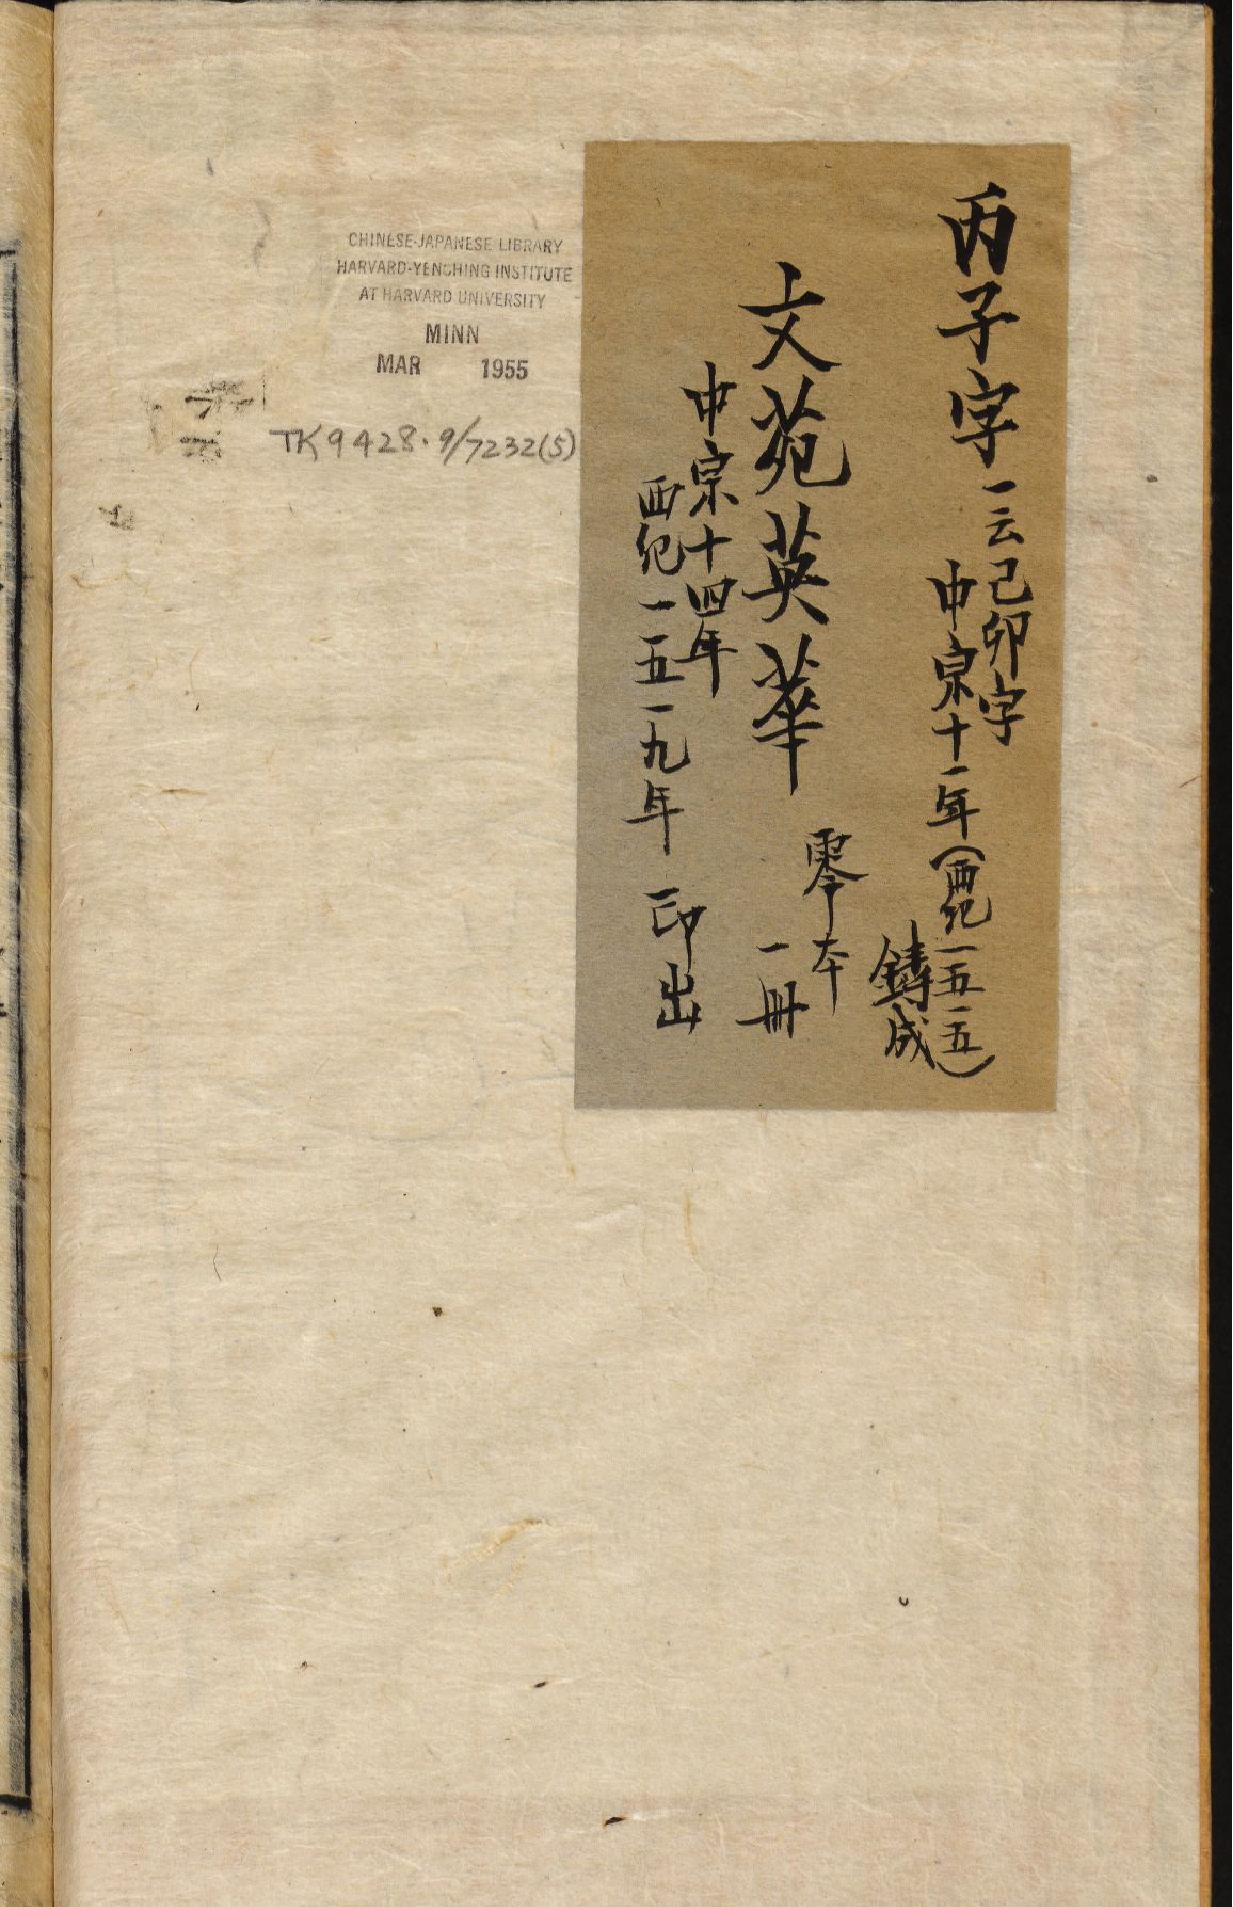 丙子字
一云己卯字
中宗十一年(西紀一五一五)
鑄成
文苑英華
零本
一冊
中宗十四年
西紀一五一九年
印出
CHINESE-JAPANESE LIBRARY
HARVARD-YENCHING INSTITUTE
AT HARVARD UNIVERSITY
MINN
MAR 1955
TK9428.9/7232(5)